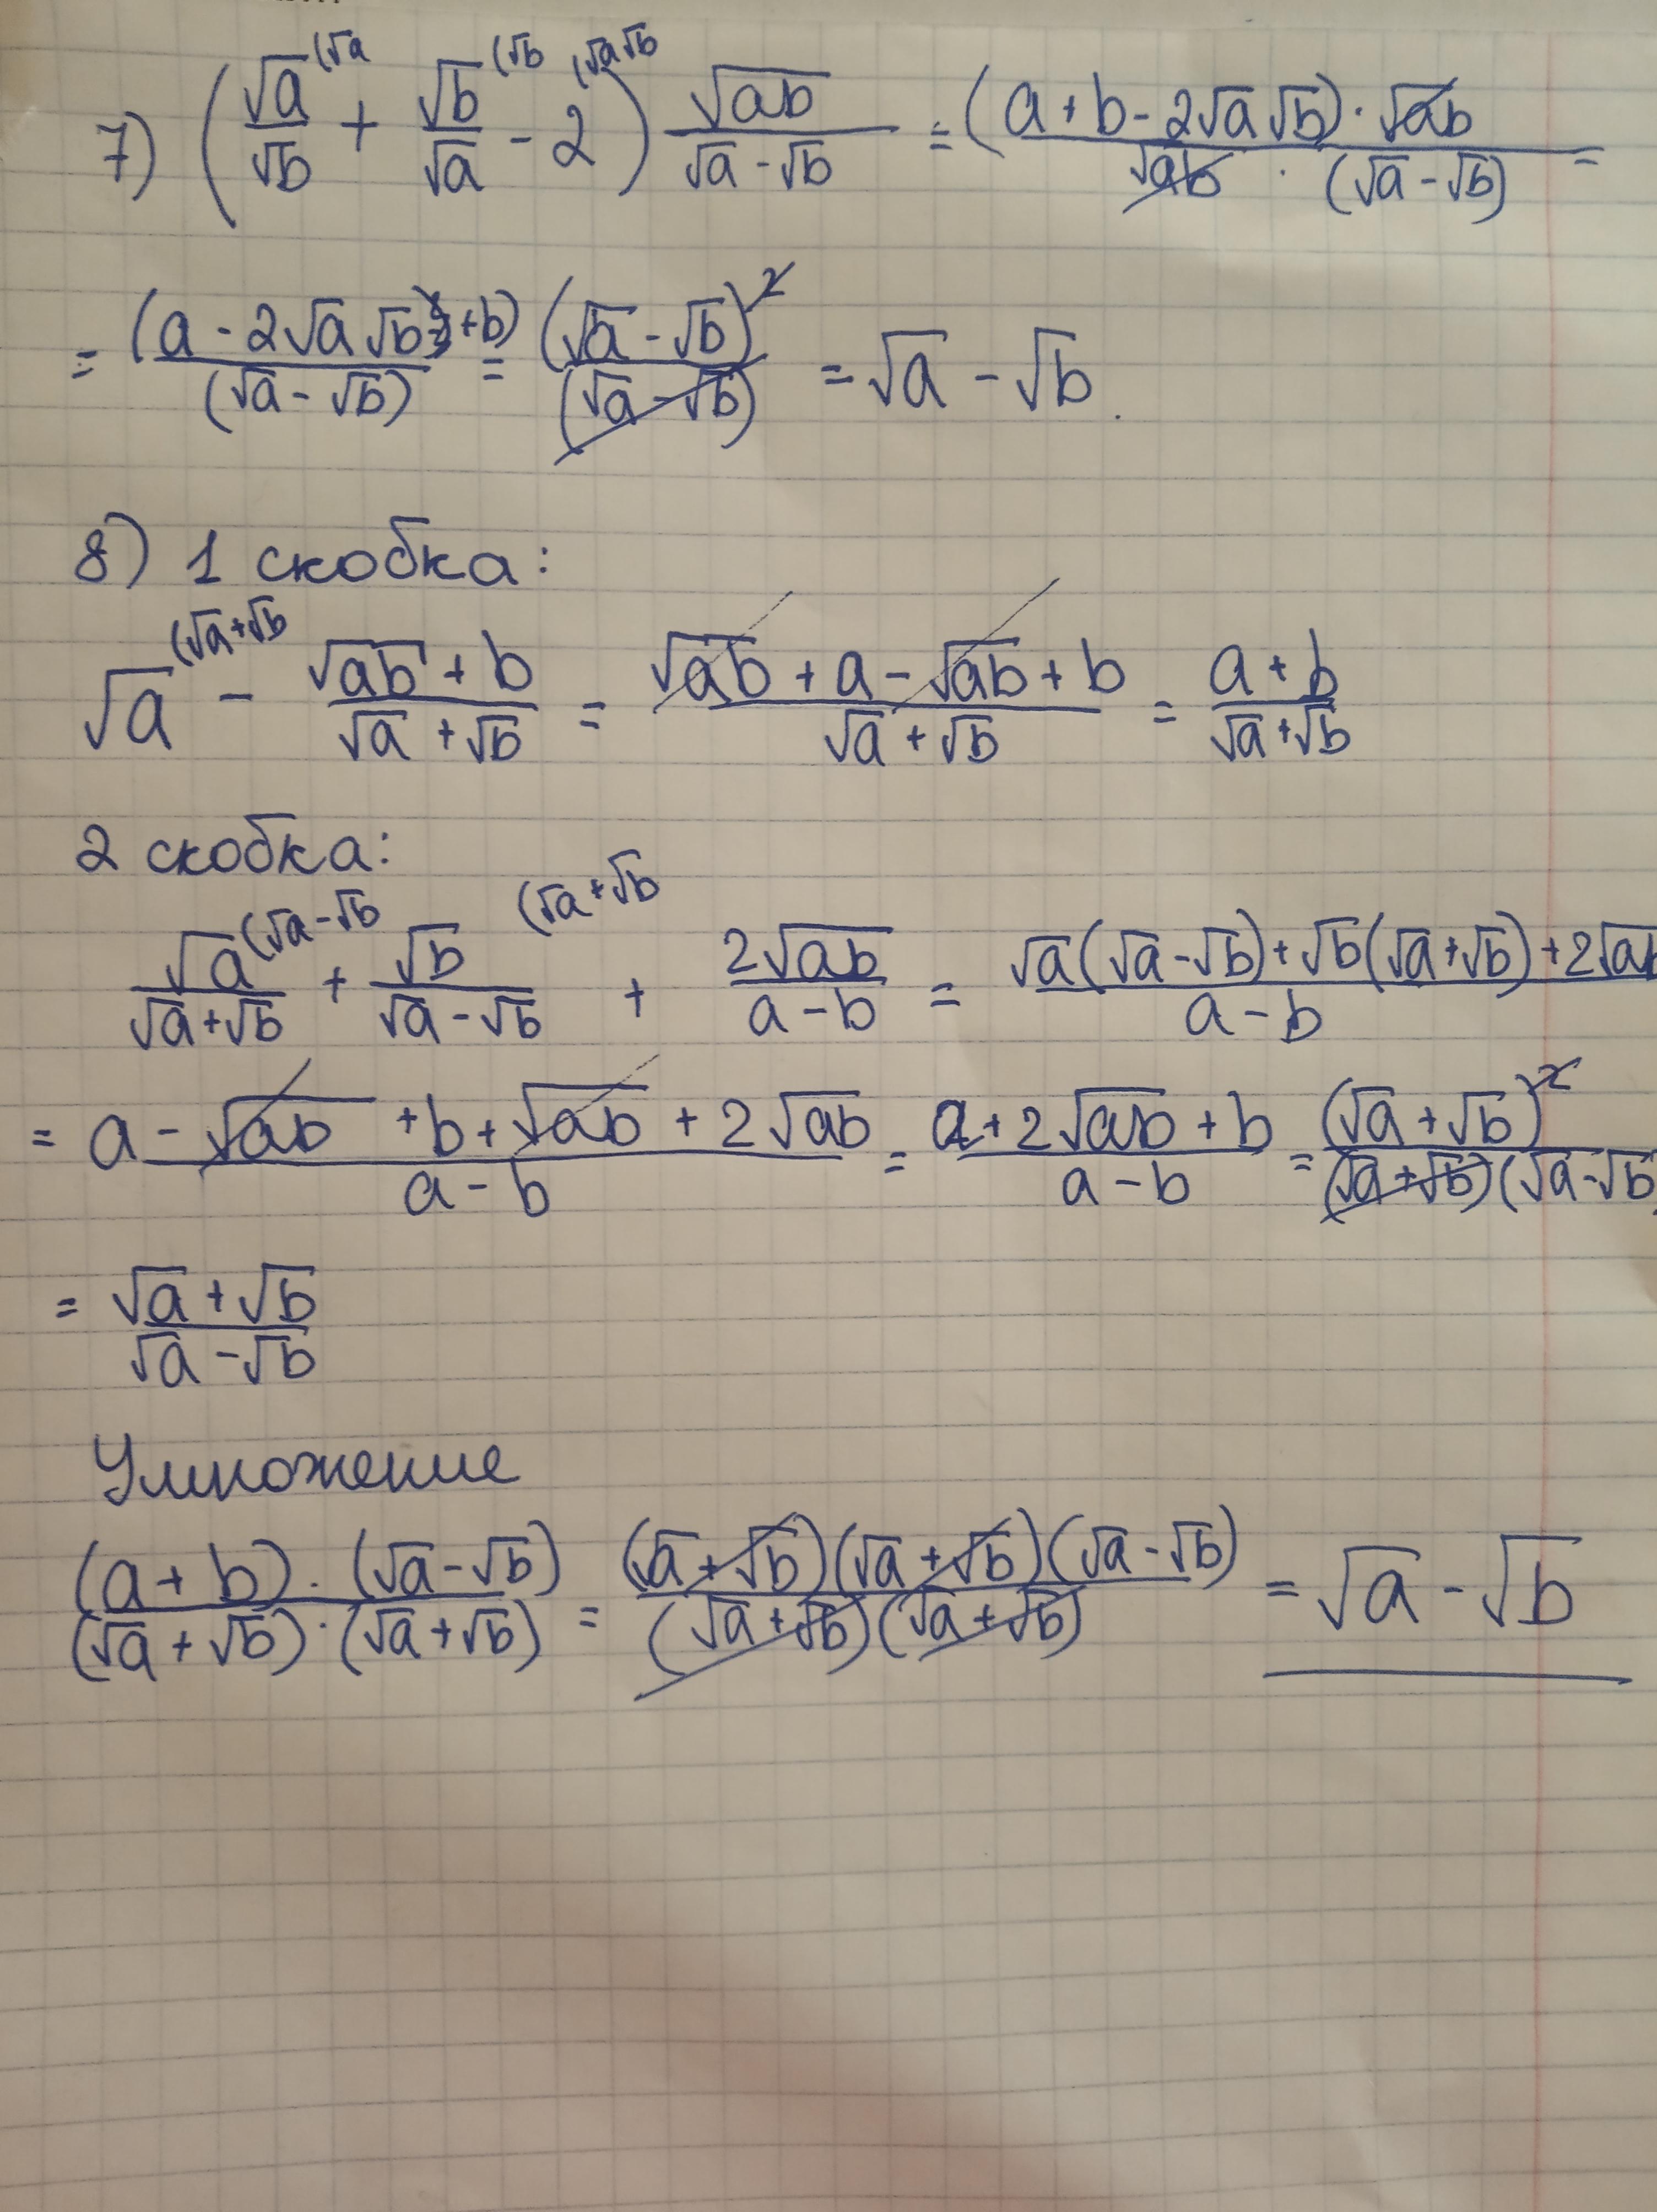 7) (√a/√b (√a + √b/√a (√b - 2 (√a√b) √ab/(√a - √b) = (a + b - 2√a√b) · √ab / √ab · (√a - √b) =
= (a - 2√a√b + b) / (√a - √b) = (√a - √b)² / (√a - √b) = √a - √b.
8) 1 скобка:
√a (√a+√b - (√ab + b)/(√a + √b) = (√ab + a - √ab + b)/(√a + √b) = (a + b)/(√a + √b)
2 скобка:
√a/(√a+√b) (√a-√b + √b/(√a-√b) (√a+√b + 2√ab/(a-b) = (√a(√a-√b)+√b(√a+√b)+2√ab)/(a-b)
= (a - √ab + b + √ab + 2√ab)/(a-b) = (a + 2√ab + b)/(a-b) = (√a + √b)²/(√a+√b)(√a-√b)
= (√a + √b)/(√a - √b)
Умножение
(a + b) · (√a - √b) / (√a + √b) · (√a + √b) = (√a + √b)(√a + √b)(√a - √b) / (√a + √b)(√a + √b) = √a - √b